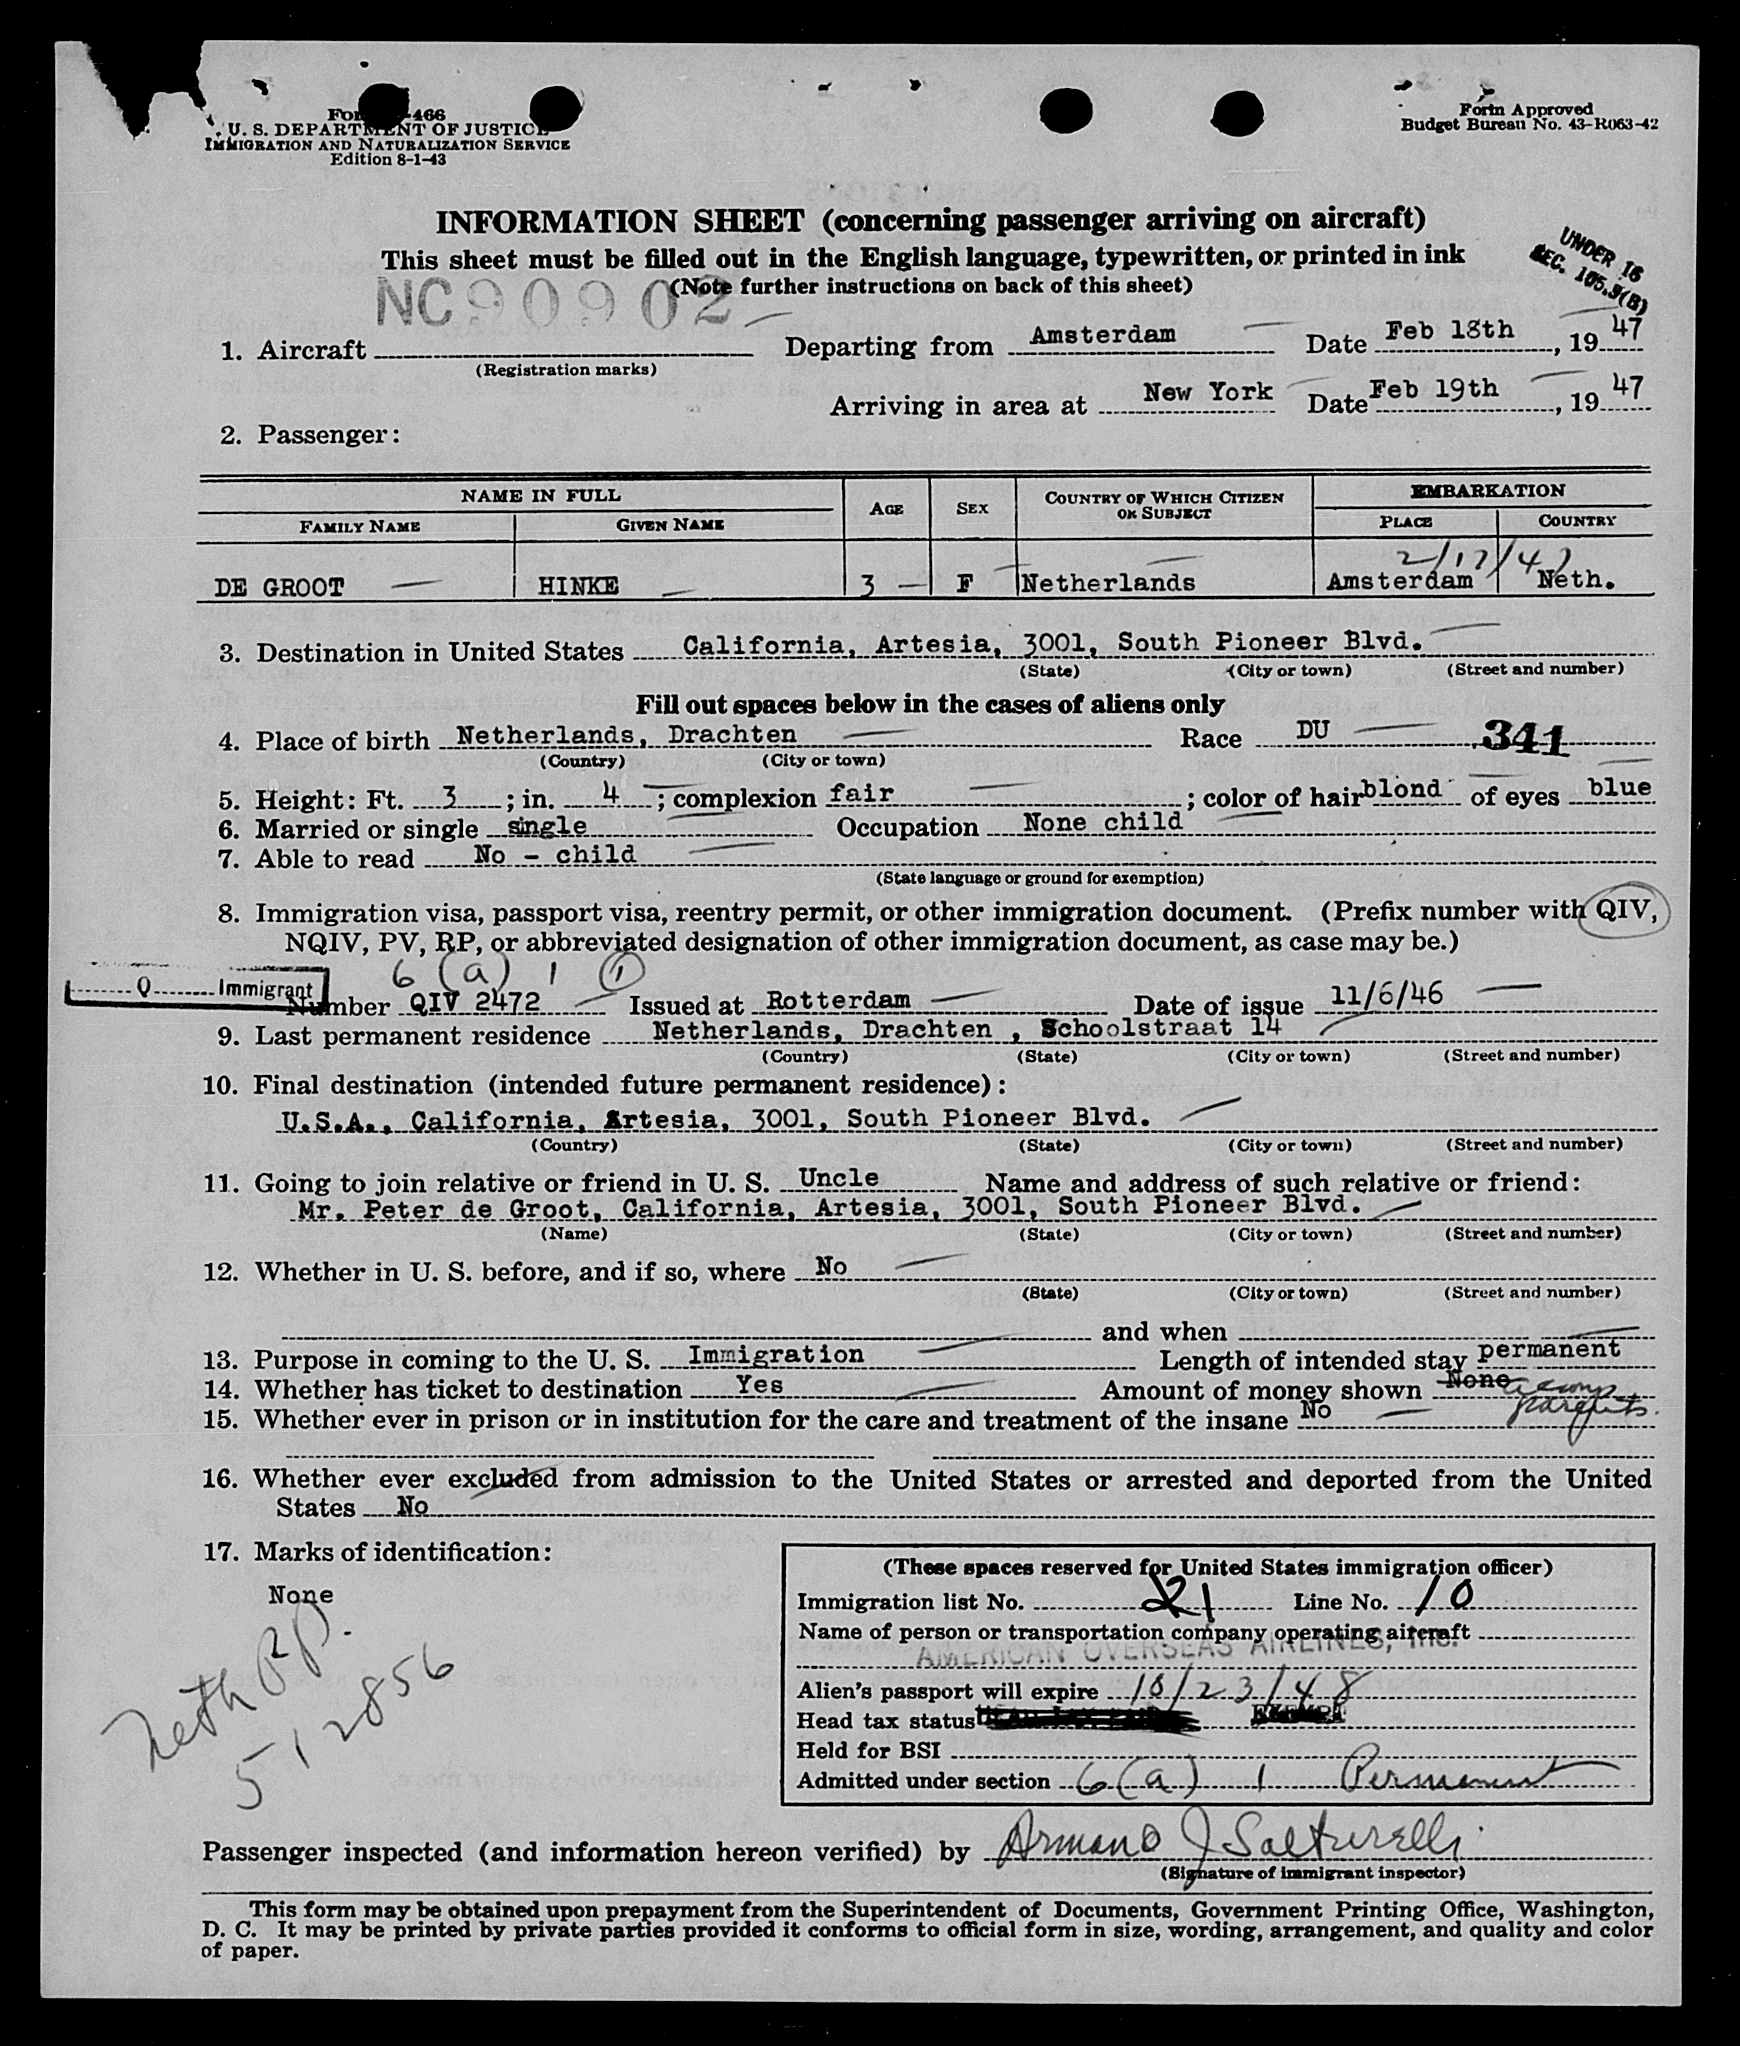 Form -466
U. S. DEPARTMENT OF JUSTICE
IMMIGRATION AND NATURALIZATION SERVICE
Edition 8-1-43
Form Approved
Budget Bureau No. 43-R063-42
INFORMATION SHEET (concerning passenger arriving on aircraft)
This sheet must be filled out in the English language, typewritten, or printed in ink
(Note further instructions on back of this sheet)
UNDER 16
SEC. 105.3(B)
NC90902
1. Aircraft Departing from Amsterdam Date Feb 18th, 1947
(Registration marks)
Arriving in area at New York Date Feb 19th, 1947
2. Passenger:
NAME IN FULL AGE SEX COUNTRY OF WHICH CITIZEN OR SUBJECT EMBARKATION
FAMILY NAME GIVEN NAME PLACE COUNTRY
2/17/47
DE GROOT HINKE 3 F Netherlands Amsterdam Neth.
3. Destination in United States California, Artesia, 3001, South Pioneer Blvd.
(State) (City or town) (Street and number)
Fill out spaces below in the cases of aliens only
4. Place of birth Netherlands, Drachten Race DU 341
(Country) (City or town)
5. Height: Ft. 3; in. 4; complexion fair; color of hair blond of eyes blue
6. Married or single single Occupation None child
7. Able to read No - child
(State language or ground for exemption)
8. Immigration visa, passport visa, reentry permit, or other immigration document. (Prefix number with QIV,
NQIV, PV, RP, or abbreviated designation of other immigration document, as case may be.)
6 (a) 1 1
Q Immigrant
Number QIV 2472 Issued at Rotterdam Date of issue 11/6/46
9. Last permanent residence Netherlands, Drachten , Schoolstraat 14
(Country) (State) (City or town) (Street and number)
10. Final destination (intended future permanent residence):
U.S.A., California, Artesia, 3001, South Pioneer Blvd.
(Country) (State) (City or town) (Street and number)
11. Going to join relative or friend in U. S. Uncle Name and address of such relative or friend:
Mr. Peter de Groot, California, Artesia, 3001, South Pioneer Blvd.
(Name) (State) (City or town) (Street and number)
12. Whether in U. S. before, and if so, where No
(State) (City or town) (Street and number)
and when
13. Purpose in coming to the U. S. Immigration Length of intended stay permanent
14. Whether has ticket to destination Yes Amount of money shown None
parents.
15. Whether ever in prison or in institution for the care and treatment of the insane No
16. Whether ever excluded from admission to the United States or arrested and deported from the United
States No
17. Marks of identification:
None
Neth PP.
512856
(These spaces reserved for United States immigration officer)
Immigration list No. 21 Line No. 10
Name of person or transportation company operating aircraft
AMERICAN OVERSEAS AIRLINES, Inc.
Alien's passport will expire 10/23/48
Head tax status EXEMPT
Held for BSI
Admitted under section 6(a) 1 Permanent
Passenger inspected (and information hereon verified) by Armand J Salturelli
(Signature of immigrant inspector)
This form may be obtained upon prepayment from the Superintendent of Documents, Government Printing Office, Washington,
D. C. It may be printed by private parties provided it conforms to official form in size, wording, arrangement, and quality and color
of paper.